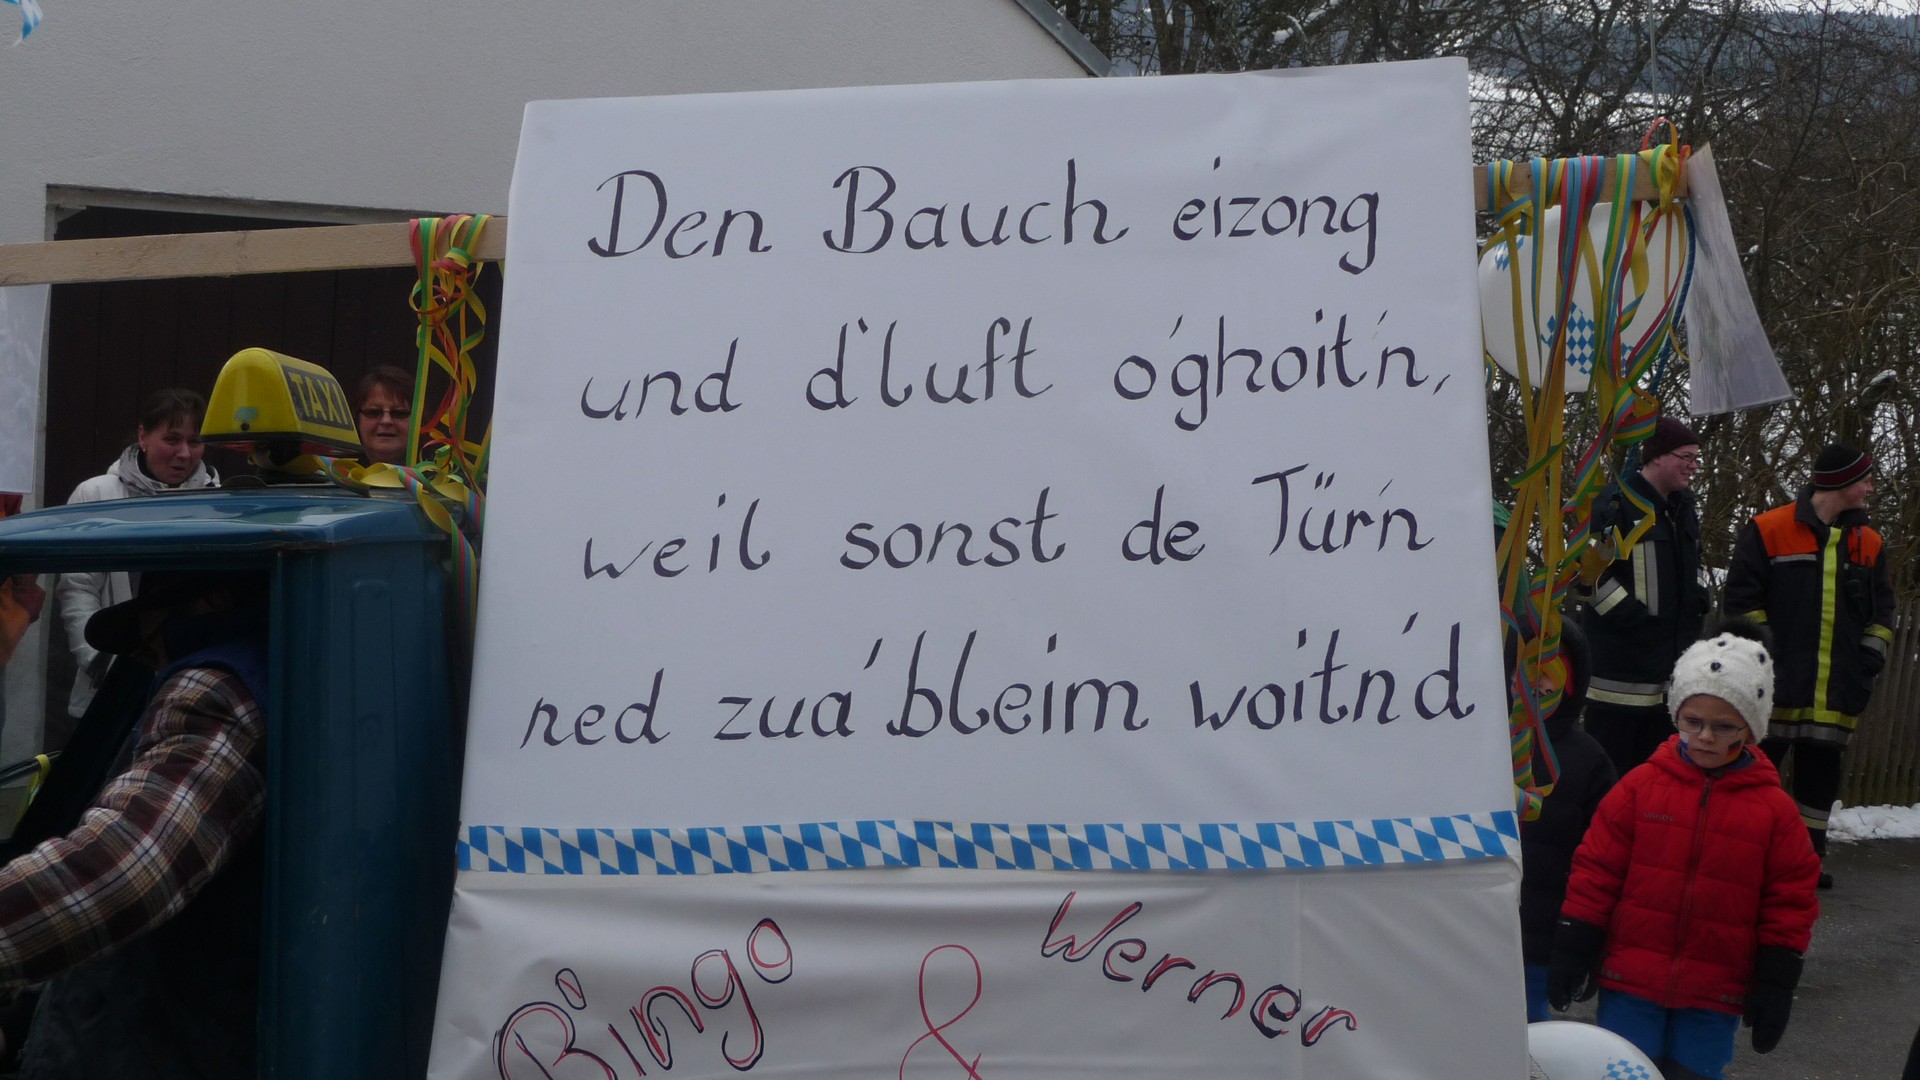 TAXI
Den Bauch eizong
und d'luft o'ghoit'n,
weil sonst de Türn
ned zua'bleim woitn'd
Bingo & Werner